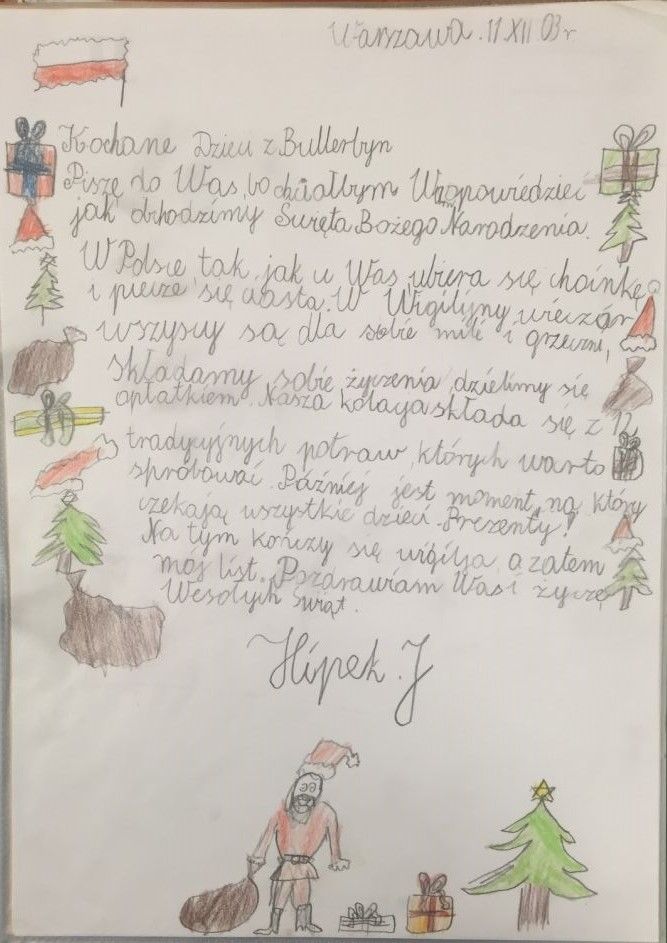 Warszawa. 11 XII 03 r
Kochane Dzieci z Bullerbyn
Piszę do Was, bo chciałbym Wam opowiedzieć
jak obchodzimy Święta Bożego Narodzenia.
W Polsce tak, jak u Was, ubiera się choinkę
i piecze się ciasta. W Wigilijny wieczór
wszyscy są dla siebie mili i grzeczni,
składamy sobie życzenia, dzielimy się
opłatkiem. Nasza kolacja składa się z 12
tradycyjnych potraw, których warto
spróbować. Później jest moment, na który
czekają wszystkie dzieci. Prezenty!
Na tym kończy się wigilia, a zatem
mój list. Pozdrawiam Was i życzę
Wesołych Świąt.
J